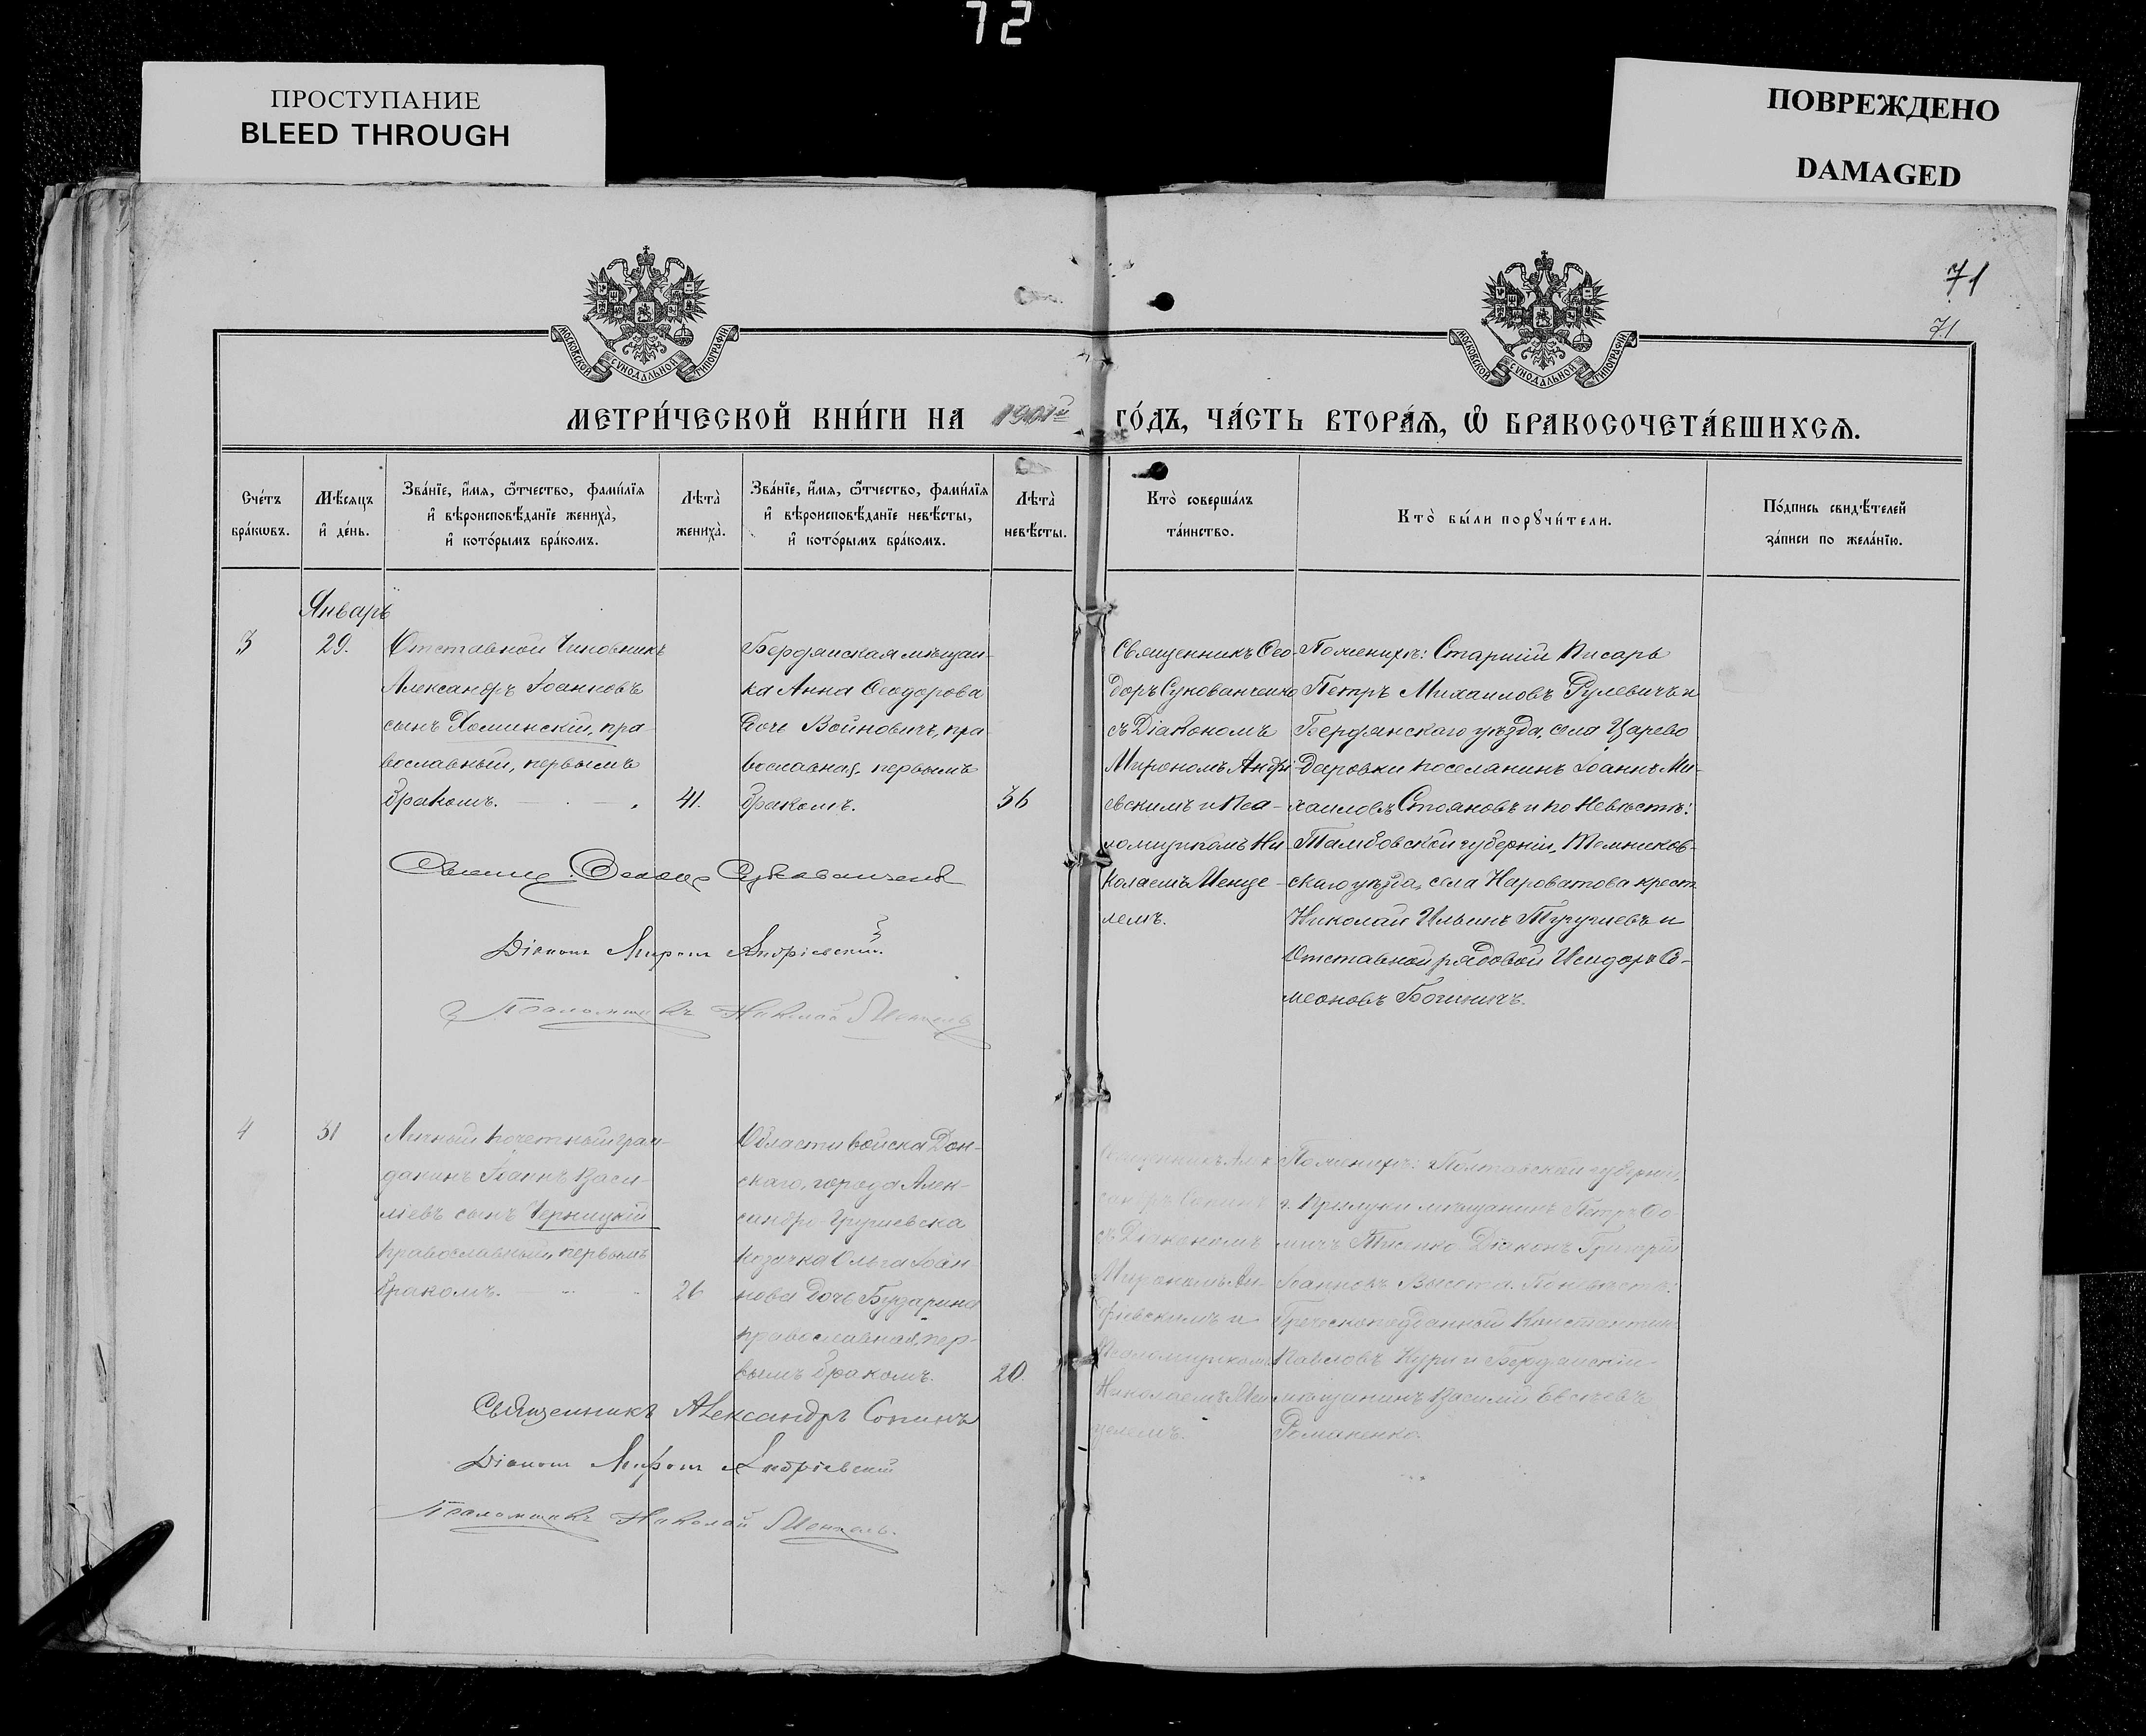 72
ПРОСТУПАНИЕ
BLEED THROUGH
ПОВРЕЖДЕНО
DAMAGED
71
71
МОСКОВСКОЙ СѴНОДАЛЬНОЙ ТИПОГРАФІИ
МОСКОВСКОЙ СѴНОДАЛЬНОЙ ТИПОГРАФІИ
МЕТРИ́ЧЕСКОЙ КНИ́ГИ НА 1901й ГО́ДЪ, ЧА́СТЬ ВТОРА́Ѧ, Ѽ БРАКОСОЧЕТА́ВШИХСѦ.
Сче́тъ
бра́кѡвъ.
Мѣ́сѧцъ
и҆ де́нь.
Зва́нїе, и҆́мѧ, ѻ҆́тчество, фами́лїѧ
и҆ вѣроисповѣ́данїе жениха̀,
и҆ кото́рымъ бра́комъ.
Лѣта̀
жениха̀.
Зва́нїе, и҆́мѧ, ѻ҆́тчество, фами́лїѧ
и҆ вѣроисповѣ́данїе невѣ́сты,
и҆ кото́рымъ бра́комъ.
Лѣта̀
невѣ́сты.
Кто̀ соверша́лъ
та́инство.
Кто̀ бы́ли порꙋчи́тели.
По́дпись свидѣ́телей
за́писи по жела́нїю.
Январь
3
29.
Отставной Чиновникъ
Александръ Іоанновъ
сынъ Хоминскій, пра-
вославный, первымъ
бракомъ.
41.
Бердянская мѣщан-
ка Анна Ѳеодорова
дочь Войновичъ, пра-
вославная, первымъ
бракомъ.
36
Священникъ Ѳео-
доръ Сукованченко
съ Діакономъ
Мирономъ Андрі-
евскимъ и Пса-
ломщикомъ Ни-
колаемъ Менце-
лемъ.
По женихѣ: Старшій Писарь
Петръ Михаиловъ Рулевичъ и
Бердянскаго уѣзда, села Царево
Даровки поселянинъ Іоаннъ Ми-
хаиловъ Стояновъ и по Невѣстѣ:
Тамбовской губерніи, Темников-
скаго уѣзда, села Нароватова крест.
Николай Ильинъ Тугушевъ и
Отставной рядовой Исидоръ Си-
меоновъ Богиничъ.
Діаконъ Миронъ Андріевскій.
Псаломщикъ Николай Менцель
4
31
Личный почетный граж-
данинъ Іоаннъ Васи-
ліевъ сынъ Черницкій
православный, первымъ
бракомъ.
26
Области войска Дон-
скаго, города Алек-
сандро Грушевска
козачка Ольга Іоан-
нова дочь Бударина
православная, пер-
вымъ бракомъ.
20.
Священникъ Алек-
сандръ Сопинъ
съ Діакономъ
Мирономъ Ан-
дріевскимъ и
Псаломщикомъ
Николаемъ Мен-
целемъ.
По женихѣ: Полтавской губерніи,
г. Прилуки мѣщанинъ Петръ Ѳо-
мичъ Діаконъ Григорій
Іоанновъ Высота. По невѣстѣ:
Греческоподданный Константинъ
Павловъ и Бердянскій
мѣщанинъ Василій
Романенко.
Священникъ Александръ Сопинъ
Діаконъ Миронъ Андріевскій
Псаломщикъ Николай Менцель.